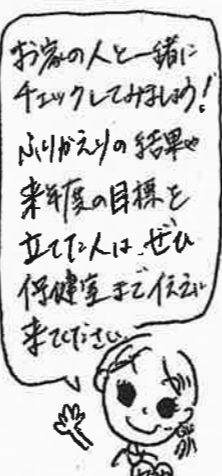 お家の人と一緒に
チェックしてみましょう!
ふりかえりの結果や
来年度の目標を
立てた人は、ぜひ
保健室まで伝えに
来てください